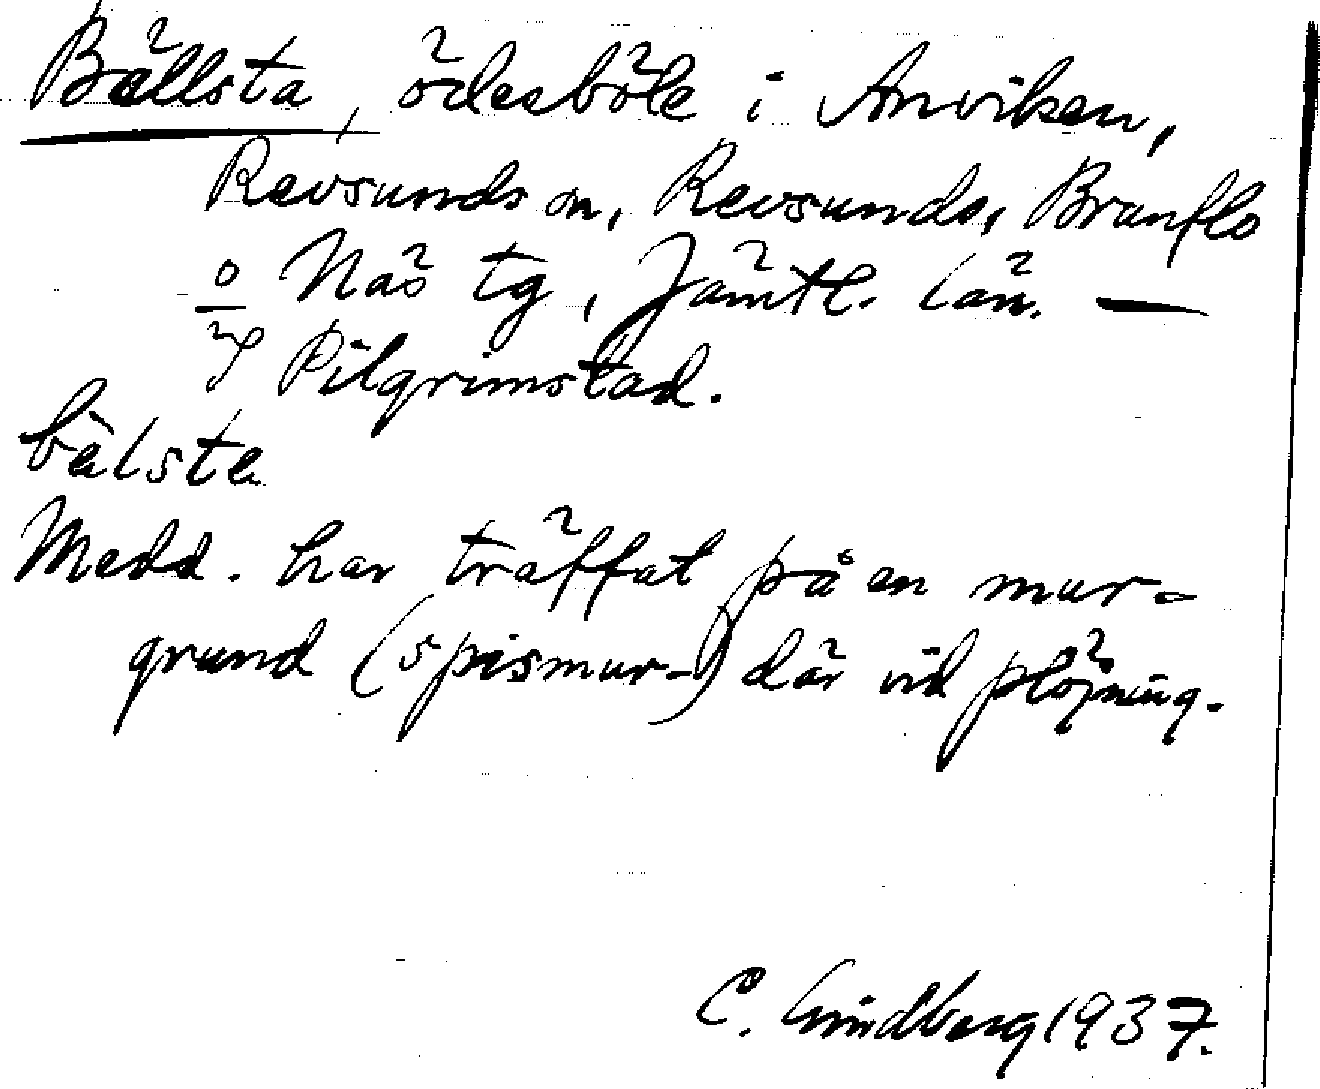 Bällsta, ödesböle i Anviken,
Revsunds sn, Revsunds, Brunflo
o Näs tg, Jämtl. län. —
Pilgrimstad.
bälste
Medd. har träffat på en mur-
grund (spismur-) där vid plöjning.
C. Lindberg 1937.